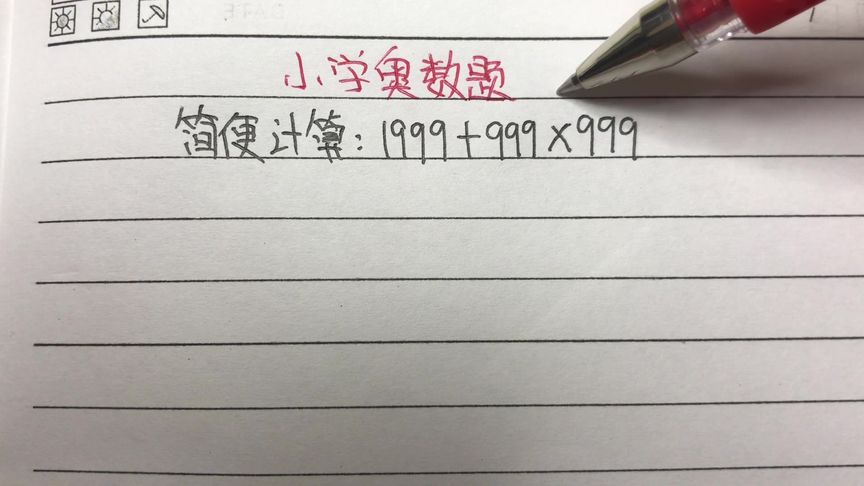 DATE
小学奥数题
简便计算:1999+999×999